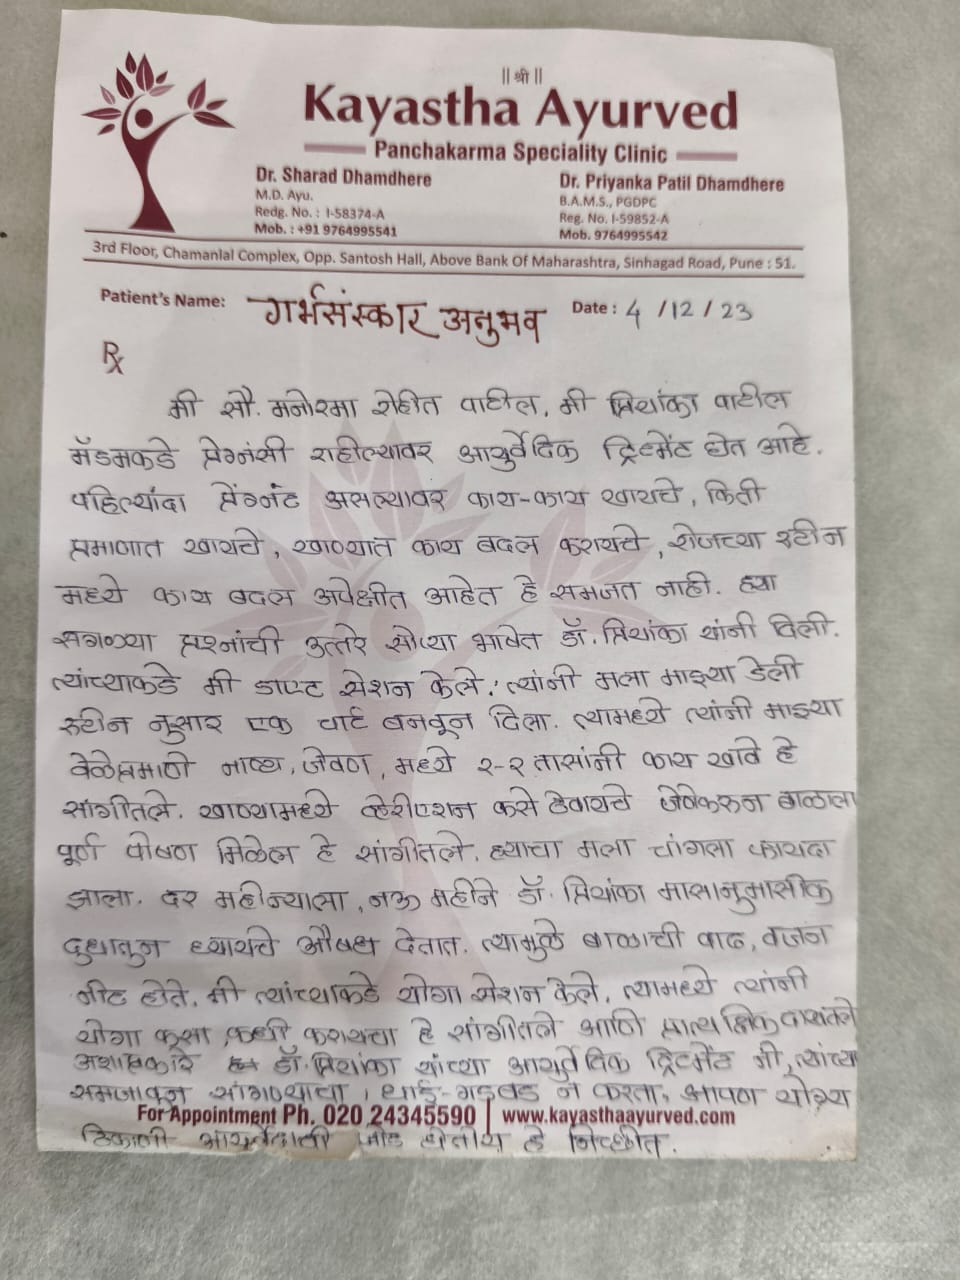 || श्री ||
Kayastha Ayurved
Panchakarma Speciality Clinic
Dr. Sharad Dhamdhere
M.D. Ayu.
Redg. No. : I-58374-A
Mob. : +91 9764995541
Dr. Priyanka Patil Dhamdhere
B.A.M.S., PGDPC
Reg. No. I-59852-A
Mob. 9764995542
3rd Floor, Chamanlal Complex, Opp. Santosh Hall, Above Bank Of Maharashtra, Sinhagad Road, Pune : 51.
Patient's Name: गर्भसंस्कार अनुभव Date : 4 / 12 / 23
Rx
मी सौ. मनोरमा रोहीत पाटील, मी प्रियांका पाटील
मॅडमकडे प्रेग्नंसी राहील्यावर आयुर्वेदिक ट्रिटमेंट घेत आहे.
पहिल्यांदा प्रेग्नंट असल्यावर काय-काय खायचे, किती
प्रमाणात खायचे, खाण्यात काय बदल करायचे, रोजच्या रुटीन
मध्ये काय बदल अपेक्षीत आहेत हे समजत नाही. ह्या
सगळ्या प्रश्नांची उत्तरे सोप्या भाषेत डॉ. प्रियांका यांनी दिली.
त्यांच्याकडे मी डाएट सेशन केले. त्यांनी मला माझ्या डेली
रुटीन नुसार एक चार्ट बनवून दिला. त्यामध्ये त्यांनी माझ्या
वेळेप्रमाणे नाष्टा, जेवण, मध्ये २-२ तासांनी काय खावे हे
सांगीतले. खाण्यामध्ये व्हेरीएशन कसे ठेवायचे जेणेकरुन बाळाला
पूर्ण पोषण मिळेल हे सांगीतले. ह्याचा मला चांगला फायदा
झाला. दर महीन्याला, नऊ महीने डॉ. प्रियांका मासानुमासीक
दुधातुन घ्यायचे औषध देतात. त्यामुळे बाळाची वाढ, वजन
नीट होते. मी त्यांच्याकडे योगा सेशन केले. त्यामध्ये त्यांनी
योगा कसा कधी करायचा हे सांगीतले आणि प्रात्यक्षिक दाखवले
अशाप्रकारे डॉ. प्रियांका यांच्या आयुर्वेदिक ट्रिटमेंट नी, त्यांच्या
समजावून सांगण्याचा, घाई-गडबड न करता, आपण योग्य
For Appointment Ph. 020 24345590 | www.kayasthaayurved.com
ठिकाणी हे निश्चीत.